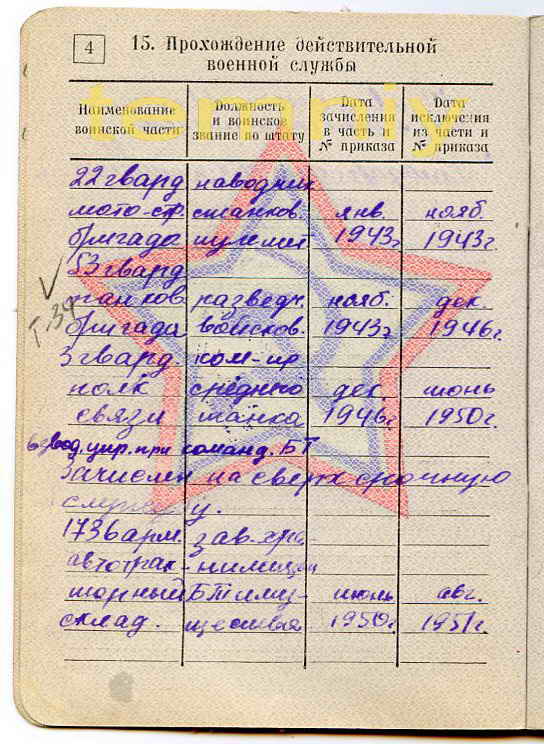 4
15. Прохождение действительной
военной службы
Наименование воинской части
Должность и воинское звание по штату
Дата зачисления в часть и № приказа
Дата исключения из части и № приказа
22 гвард наводчик
мото-стр станков. янв. нояб.
бригада пулемет 1943г 1943г.
53 гвард
танков разведч. нояб. дек.
бригада войсков. 1943г 1946г.
3 гвард. ком-ир
полк среднего дек. июнь
связи танка 1946г 1950г.
взвод. упр. при команд. БТ
Зачислен на сверхсрочную
службу.
1736 арм. зав-хра-
автотрак- нилищем
торный БТ иму- июнь авг.
склад. щества 1950г. 1951г.
Т-34